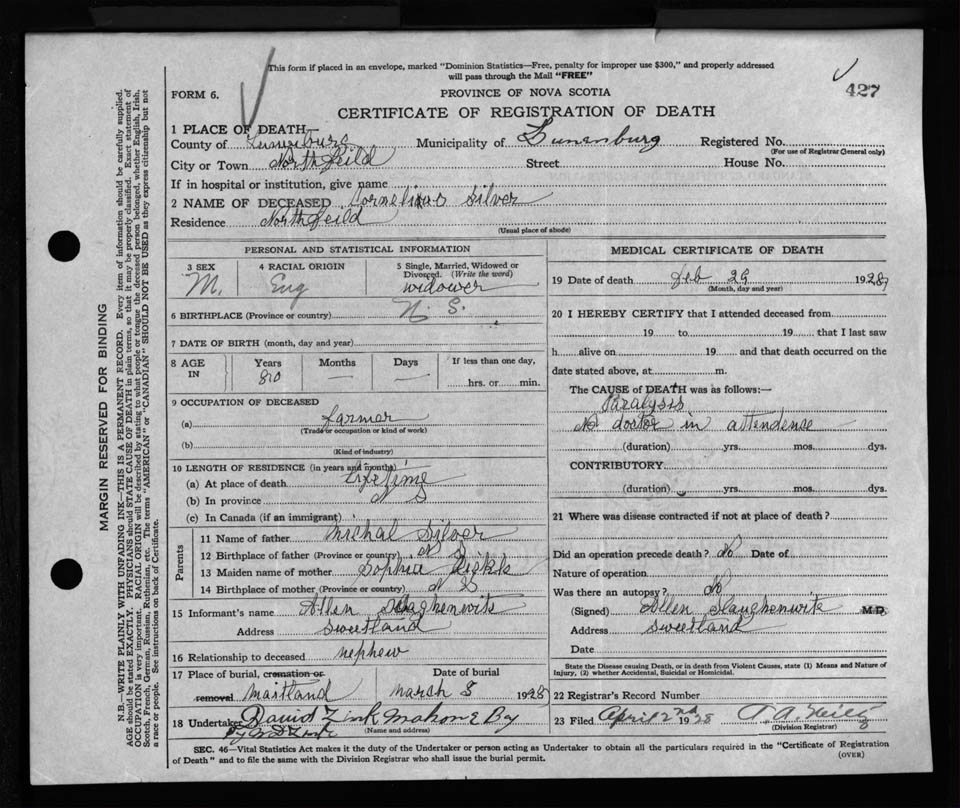 This form if placed in an envelope, marked "Dominion Statistics—Free, penalty for improper use $300," and properly addressed
will pass through the Mail "FREE"
FORM 6.
PROVINCE OF NOVA SCOTIA
427
CERTIFICATE OF REGISTRATION OF DEATH
1 PLACE OF DEATH
County of Lunenburg Municipality of Lunenburg Registered No.
(For use of Registrar General only)
City or Town Northfeild Street House No.
If in hospital or institution, give name
2 NAME OF DECEASED Cornelius Silver
Residence Northfeild
(Usual place of abode)
PERSONAL AND STATISTICAL INFORMATION
3 SEX 4 RACIAL ORIGIN 5 Single, Married, Widowed or
Divorced. (Write the word)
M. Eng widower
6 BIRTHPLACE (Province or country) N. S.
7 DATE OF BIRTH (month, day and year)
8 AGE IN Years Months Days If less than one day,
80 — — hrs. or min.
9 OCCUPATION OF DECEASED
(a) farmer
(Trade or occupation or kind of work)
(b)
(Kind of industry)
10 LENGTH OF RESIDENCE (in years and months)
(a) At place of death lifetime
(b) In province N S
(c) In Canada (if an immigrant)
Parents
11 Name of father Michal Silver
12 Birthplace of father (Province or country) N S
13 Maiden name of mother Sophia
14 Birthplace of mother (Province or country) N S
15 Informant's name Allen Slaghenwite
Address Sweetland
16 Relationship to deceased nephew
17 Place of burial, cremation or Date of burial
removal Maitland March 3 1928
18 Undertaker David Zink Mahone By
(Name and address)
MEDICAL CERTIFICATE OF DEATH
19 Date of death Feb 29 1928
(Month, day and year)
20 I HEREBY CERTIFY that I attended deceased from
19 to 19 that I last saw
h alive on 19 and that death occurred on the
date stated above, at m.
The CAUSE of DEATH was as follows:—
Paralysis
No doctor in attendense
(duration) yrs. mos. dys.
CONTRIBUTORY
(duration) yrs. mos. dys.
21 Where was disease contracted if not at place of death?
Did an operation precede death? No Date of
Nature of operation
Was there an autopsy? No
(Signed) Allen Slaughenwite M.D.
Address Sweetland
Date
State the Disease causing Death, or in death from Violent Causes, state (1) Means and Nature of
Injury, (2) whether Accidental, Suicidal or Homicidal.
22 Registrar's Record Number
23 Filed April 2nd 1928
(Division Registrar)
SEC. 46—Vital Statistics Act makes it the duty of the Undertaker or person acting as Undertaker to obtain all the particulars required in the "Certificate of Registration
of Death" and to file the same with the Division Registrar who shall issue the burial permit.
(OVER)
MARGIN RESERVED FOR BINDING
N.B.—WRITE PLAINLY WITH UNFADING INK—THIS IS A PERMANENT RECORD. Every item of information should be carefully supplied.
AGE should be stated EXACTLY. PHYSICIANS should STATE CAUSE OF DEATH in plain terms, so that it may be properly classified. Exact statement of
OCCUPATION is very important. RACIAL ORIGIN will be described by stating to what people or tongue the deceased person belonged, whether English, Irish,
Scotch, French, German, Russian, Ruthenian, etc. The terms "AMERICAN" or "CANADIAN" SHOULD NOT BE USED as they express citizenship but not
a race or people. See instructions on back of Certificate.